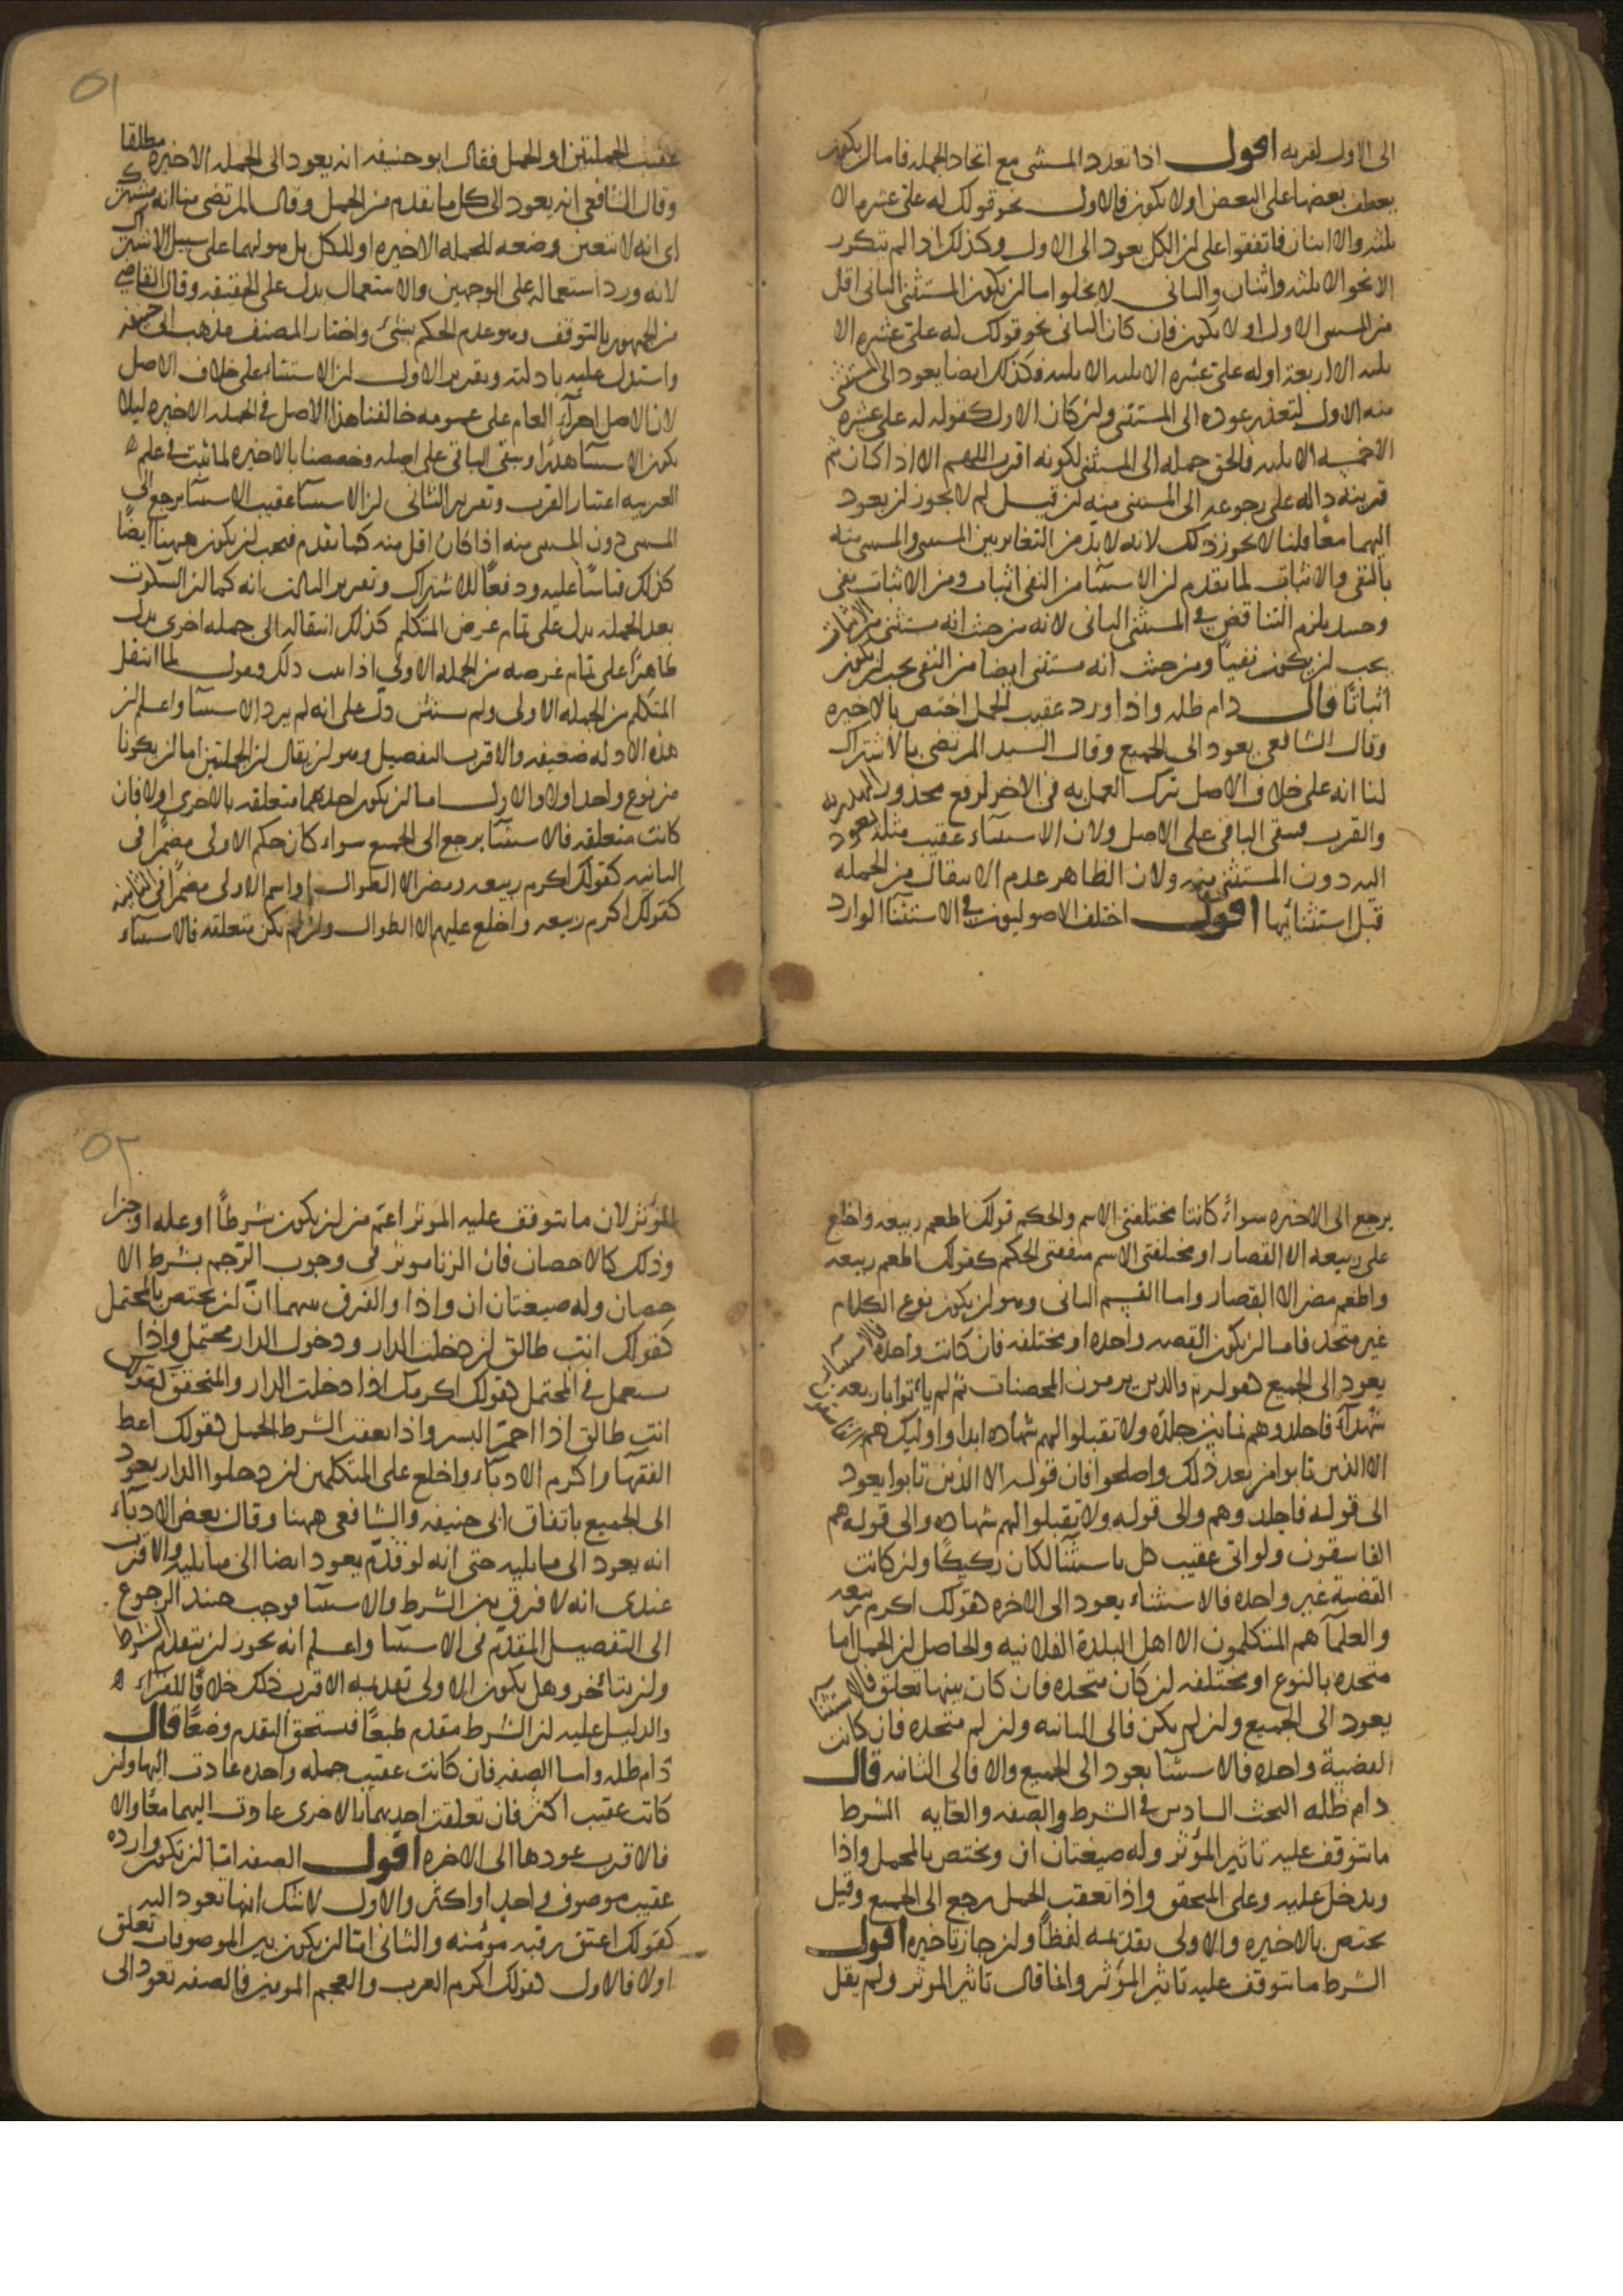 الى الاول لقربه اقول اذا تعدد المستثنى مع اتحاد الجملة فاما ان يكون
يعطف بعضها على البعض او لا يكون فالاول نحو قولك له على عشره الا
ثلثه والا اثنان فاتفقوا على ان الكل يعود الى الاول وكذلك اذا لم تتكرر
الا نحو الا ثلثه واثنان والثاني لا يخلوا اما ان يكون المستثنى الثاني اقل
من المستثنى الاول او لا يكون فان كان الثاني نحو قولك له على عشره الا
ثلثه الا اربعة او له على عشره الا ثلثه الا ثلثه فكذلك ايضا يعود الى المستثنى
منه الاول لتعذر عوده الى المستثنى وان كان الاول كقوله له على عشره
الا خمسه الا ثلثه فالحق حمله الى المستثنى لكونه اقرب اللهم الا اذا كان ثم
قرينة داله على رجوعه الى المستثنى منه ان قيل لم لا يجوز ان يعود
اليهما معا قلنا لا يجوز ذلك لانه لا بد من التغاير بين المستثنى والمستثنى منه
بالنفي والاثبات لما تقدم ان الاستثنا من النفي اثبات ومن الاثبات نفي
وحينئذ يلزم التناقض في المستثنى الثاني لانه من حيث انه مستثنى من الاثبات
يجب ان يكون نفيا ومن حيث انه مستثنى ايضا من النفي يجب ان يكون
اثباتا قال دام ظله واذا ورد عقيب الجمل اختص بالاخيره
وقال الشافعي يعود الى الجميع وقال السيد المرتضى بالاشتراك
لنا انه على خلاف الاصل ترك العمل به في الاخير لرفع محذور الهذرية
والقرب فيبقى الباقي على الاصل ولان الاستثناء عقيب مثله يعود
اليه دون المستثنى منه ولان الظاهر عدم الانتقال من الجمله
قبل استثنائها اقول اختلف الاصوليون في الاستثنا الوارد
عقيب الجملتين او الجمل فقال ابو حنيفه انه يعود الى الجمله الاخيره مطلقا
وقال الشافعي انه يعود الى كل ما تقدم من الجمل وقال المرتضى منا انه مشترك
اى انه لا يتعين وضعه للجمله الاخيره او للكل بل هو لهما على سبيل الاشتراك
لانه ورد استعماله على الوجهين والاستعمال يدل على الحقيقه وقال القاضي
من الجمهور بالتوقف وهو عدم الحكم بشئ واختار المصنف مذهب ابى حنيفه
واستدل عليه بادلته وتقرير الاول ان الاستثناء على خلاف الاصل
لان الاصل اجرآء العام على عمومه خالفنا هذا الاصل في الجمله الاخيره ليلا
يكون الاستثنا هذرا ويبقى الباقي على اصله وخصصنا بالاخيره لما ثبت في علم
العربيه اعتبار القرب وتقرير الثاني ان الاستثنا عقيب الاستثنا يرجع الى
المستثنى دون المستثنى منه اذا كان اقل منه كما تقدم فيجب ان يكون ههنا ايضا
كذلك قياسًا عليه ودفعًا للاشتراك وتقرير الثالث انه كما ان السكوت
بعد الجمله يدل على تمام غرض المتكلم كذلك انتقاله الى جمله اخرى يدل
ظاهرًا على تمام غرضه من الجمله الاولى اذا ثبت ذلك فنقول لما انتقل
المتكلم من الجمله الاولى ولم يستثن دل على انه لم يرد الاستثنا واعلم ان
هذه الادله ضعيفه والاقرب التفصيل وهو ان يقال ان الجملتين اما ان يكونا
من نوع واحد اولا والاول اما ان يكون احدهما متعلقه بالاخرى اولا فان
كانت متعلقه فالاستثنا يرجع الى الجميع سواء كان حكم الاولى مضمرًا في
الثانيه كقولك اكرم ربيعه ومضر الا الطوال او اسم الاولى مضمرًا في الثانيه
كقولك اكرم ربيعه واخلع عليهم الا الطوال وان لم يكن متعلقه فالاستثناء
يرجع الى الاخيره سواء كانتا مختلفتي الاسم والحكم قولك اطعم ربيعه واخلع
على ربيعه الا القصار او مختلفتي الاسم متفقتي الحكم كقولك اطعم ربيعه
واطعم مضر الا القصار واما القسم الثاني وهو ان يكون نوع الكلام
غير متحد فاما ان يكون القصه واحده او مختلفه فان كانت واحده فالاستثناء
يعود الى الجميع كقوله تع والذين يرمون المحصنات ثم لم ياتوا باربعه
شهدآء فاجلدوهم ثمانين جلدة ولا تقبلوا لهم شهاده ابدا واوليك هم الفاسقون
الا الذين تابوا من بعد ذلك واصلحوا فان قوله الا الذين تابوا يعود
الى قوله فاجلدوهم والى قوله ولا تقبلوا لهم شهاده والى قوله هم
الفاسقون ولو اتى عقيب كل باستثنا لكان ركيكًا وان كانت
القضية غير واحده فالاستثناء يعود الى الاخره كقولك اكرم ربيعه
والعلمآ هم المتكلمون الا اهل البلدة الفلانيه والحاصل ان الجمل اما
متحده بالنوع او مختلفه ان كان متحده فان كان بينها تعلق فالاستثنآ
يعود الى الجميع وان لم يكن فالى الثانيه وان لم متحده فان كانت
القضية واحده فالاستثنا يعود الى الجميع والا فالى الثانيه قال
دام ظله البحث السادس في الشرط والصفه والغايه الشرط
ما يتوقف عليه تاثير المؤثر وله صيغتان ان ويختص بالمحتمل واذا
ويدخل عليه وعلى المحقق واذا تعقب الجمل رجع الى الجميع وقيل
يختص بالاخيره والاولى تقديمه لفظًا وان جاز تاخيره اقول
الشرط ما يتوقف عليه تاثير المؤثر وانما قال تاثير المؤثر ولم يقل
المؤثر لان ما يتوقف عليه المؤثر اعم من ان يكون شرطًا او عله او جزا
وذلك كالاحصان فان الزنا موثر في وجوب الرجم بشرط الا
حصان وله صيغتان ان واذا والفرق بينهما ان ان يختص بالمحتمل
كقولك انت طالق ان دخلت الدار ودخول الدار محتمل واذا
يستعمل في المحتمل كقولك اكرمك اذا دخلت الدار والمتحقق كقولك
انت طالق اذا احمر البسر واذا تعقب الشرط الجمل كقولك اعط
الفقهآ واكرم الادبآء واخلع على المتكلمين ان دخلوا الدار يعود
الى الجميع باتفاق ابى حنيفه والشافعي ههنا وقال بعض الادبآء
انه يعود الى ما يليه حتى انه لو قدم يعود ايضا الى ما يليه والاقرب
عندى انه لا فرق بين الشرط والاستثنا فوجب حينئذ الرجوع
الى التفصيل المقدم في الاستثنا واعلم انه يجوز ان يتقدم الشرط
وان يتأخر وهل يكون الاولى تقديمه الاقرب ذلك خلافًا للفراء
والدليل عليه ان الشرط متقدم طبعًا فيستحق التقدم وضعًا قال
دام ظله واما الصفه فان كانت عقيب جمله واحده عادت اليها وان
كانت عقيب اكثر فان تعلقت احديهما بالاخرى عادت اليهما معًا والا
فالاقرب عودها الى الاخره اقول الصفه اما ان تكون وارده
عقيب موصوف واحد او اكثر والاول لا شك انها تعود اليه
كقولك اعتق رقبه مؤمنه والثاني اما ان يكون بين الموصوفات تعلق
اولا فالاول كقولك اكرم العرب والعجم المومنين فالصفه تعود الى